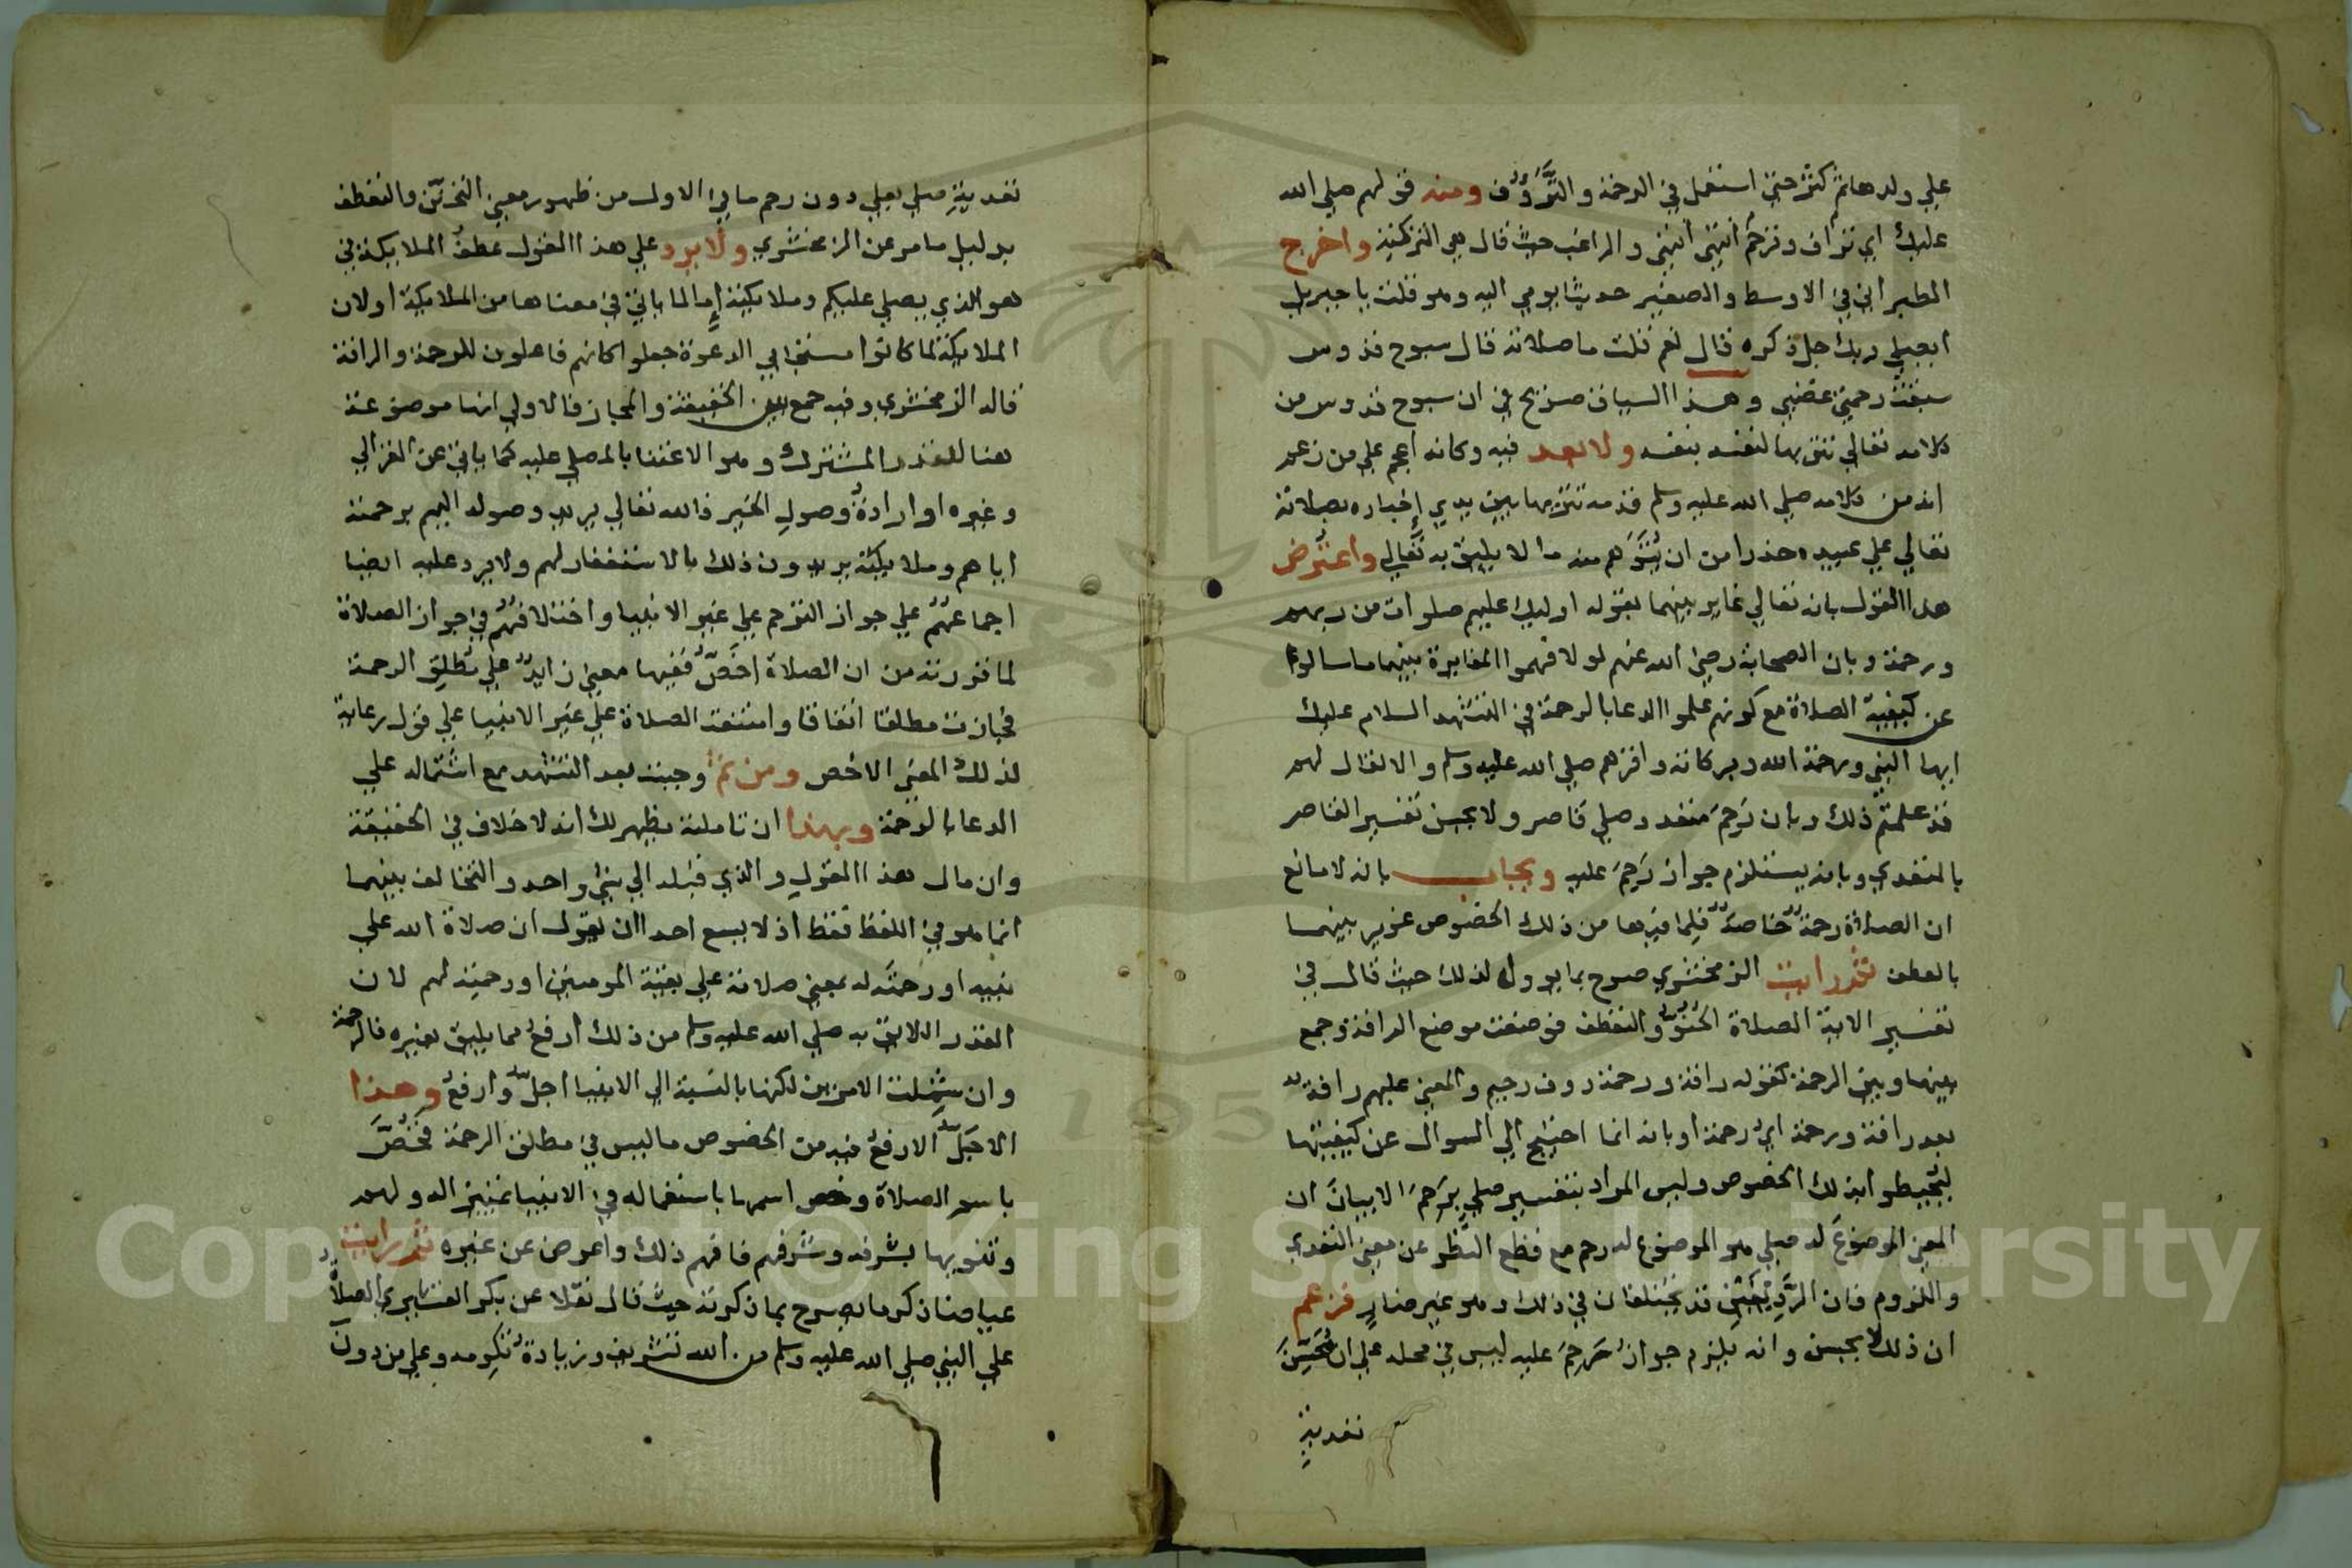 علي ولدها ثم كثر حتي استعمل في الرحمة والترؤف ومنه قولهم صلي الله
عليك اي تراف وترحم انتهي والراغب حيث قال هي التزكية واخرج
الطبراني في الاوسط والصغير حديثا يومي اليه وهو قلت يا جبريل
ايصلي ربك جل ذكره قال نعم قلت ما صلاته قال سبوح قدوس
سبقت رحمتي غضبي وهذا السياق صريح في ان سبوح قدوس من
كلامه تعالي تنزيها لنفسه بنفسه ولا بعد فيه وكانه اعجم علي من زعم
انه من كلامه صلي الله عليه وسلم قدمه تنزيها بين يدي اخباره بصلاته
تعالي علي عبيده حذرا من ان يتوهم منه ما لا يليق به تعالي واعترض
هذا القول بانه تعالي غاير بينهما بقوله اوليك عليهم صلوات من ربهم
ورحمة وبان الصحابة رضي الله عنهم لو لا فهموا المغايرة بينهما ما سالوا
عن كيفية الصلاة مع كونهم علموا الدعا بالرحمة في التشهد السلام عليك
ايها النبي ورحمة الله وبركاته واقرهم صلي الله عليه وسلم والا لقال لهم
قد علمتم ذلك وبان رحم متعد وصلي قاصر ولا يحسن تفسير القاصر
بالمتعدي وبانه يستلزم جواز رحم عليه ويجاب بانه لا مانع
ان الصلاة رحمة خاصة فلما فيها من ذلك الخصوص غوير بينهما
بالعطف ثم رايت الزمخشري صرح بما يوول لذلك حيث قال في
تفسير الاية الصلاة الحنو والتعطف فوضعت موضع الرافة وجمع
بينها وبين الرحمة كقوله رافة ورحمة رووف رحيم والمعني عليهم رافة
بعد رافة ورحمة اي رحمة او بانه انما احتيج الي السوال عن كيفيتها
ليحيطوا بذلك الخصوص وليس المراد بتفسير صلي برحم الا بيان ان
المعني الموضوع له صلي هو الموضوع له رحم مع قطع النظر عن معني التعدي
واللزوم فان الرديفين قد يختلفان في ذلك وهو غير ضار فزعم
ان ذلك لا يحسن وانه يلزم جواز رحم عليه ليس في محله علي ان محسن
تعدية
تعدية صلي بعلي دون رحم ما في الاول من ظهور معني التحنن والتعطف
بدليل ما مر عن الزمخشري ولا يرد علي هذا القول عطف الملايكة في
هو الذي يصلي عليكم وملايكته إما لما ياتي في معناها من الملايكة او لان
الملايكة لما كانوا مستجابي الدعوة جعلوا كانهم فاعلون للرحمة والرافة
قاله الزمخشري وفيه جمع بين الحقيقة والمجاز فالاولي انها موضوعة
هنا للقدر المشترك وهو الاعتنا بالمصلي عليه كما ياتي عن الغزالي
وغيره او ارادة وصول الخير فالله تعالي يريد وصوله اليهم برحمته
اياهم وملايكته يريدون ذلك بالاستغفار لهم ولا يرد عليه ايضا
اجماعهم علي جواز الترحم علي غير الانبيا واختلافهم في جواز الصلاة
لما قررته من ان الصلاة اخص ففيها معني زايد علي مطلق الرحمة
فجازت مطلقا اتفاقا وامتنعت الصلاة علي غير الانبيا علي قول رعاية
لذلك المعني الاخص ومن ثم وجبت بعد التشهد مع اشتماله علي
الدعا بالرحمة وبهذا ان تاملته يظهر لك انه لا خلاف في الحقيقة
وان مال هذا القول والذي قبله الي شي واحد والتخالف بينهما
انما هو في اللفظ فقط اذ لا يسع احدا ان يقول ان صلاة الله علي
نبيه او رحمته له بمعني صلاته علي بقية المومنين او رحمته لهم لان
القدر اللايق به صلي الله عليه وسلم من ذلك ارفع مما يليق بغيره فالرحمة
وان شملت الامرين لكنها بالنسبة الي الانبيا اجل وارفع وهذا
الاجل الارفع فيه من الخصوص ما ليس في مطلق الرحمة فخص
باسم الصلاة وخص اسمها باستعماله في الانبيا تمييزا له ولهم
وتنويها بشرفه وشرفهم فافهم ذلك واعرض عن غيره ثم رايت
عياضا ذكر ما يصرح بما ذكرته حيث قال نقلا عن بكر القشيري الصلاة
علي النبي صلي الله عليه وسلم من الله تشريف وزيادة تكرمة وعلي من دون
Copyright © King Saud University
195